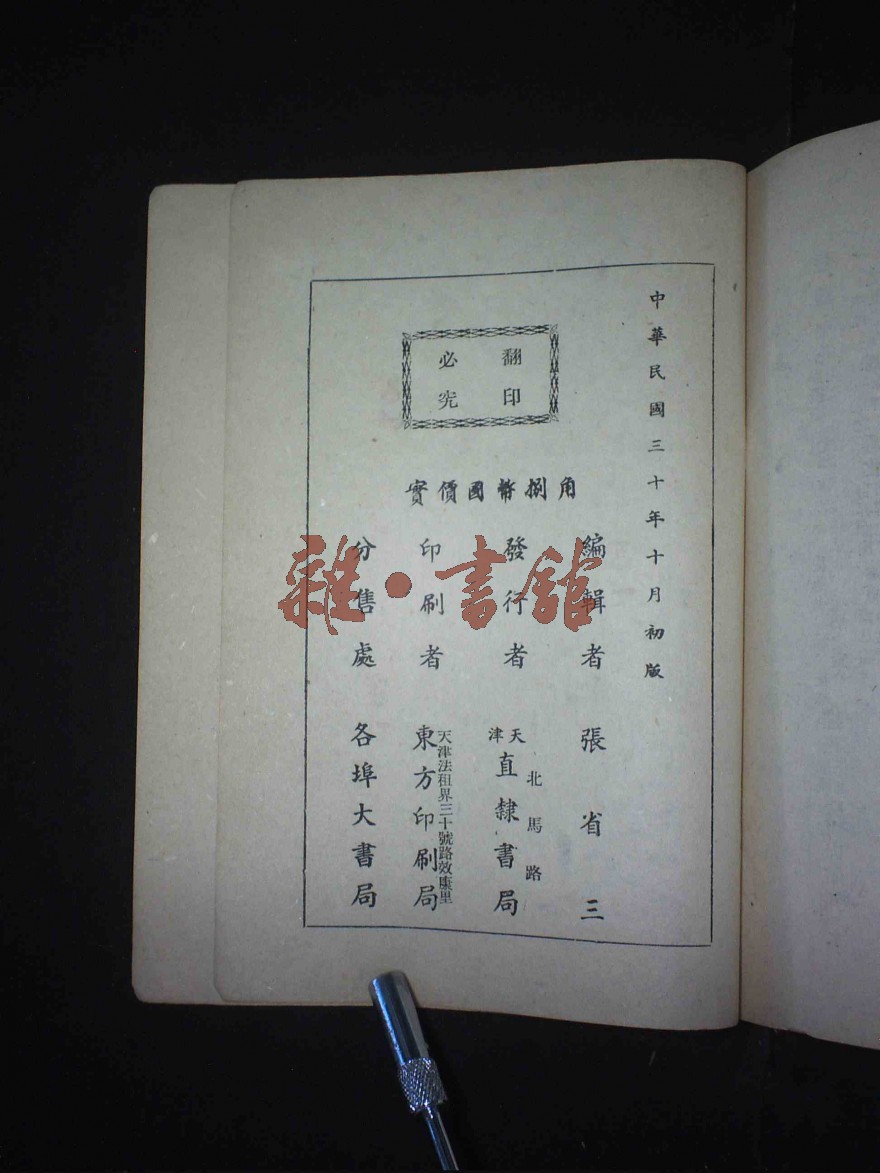 中華民國三十年十月初版
翻印
必究
實價國幣捌角
編輯者 張省三
發行者 天津 北馬路 直隸書局
印刷者 天津法租界三十號路效康里 東方印刷局
分售處 各埠大書局
雜·書館